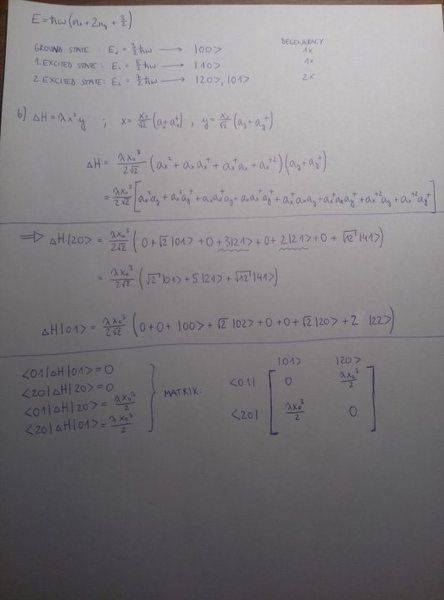 E = ħω(nₓ + 2n_y + 3/2)
DEGENERACY
GROUND STATE : E₀ = 3/2 ħω ⟶ |00> 1x
1. EXCITED STATE: E₁ = 5/2 ħω ⟶ |10> 1x
2. EXCITED STATE: E₂ = 7/2 ħω ⟶ |20>, |01> 2x
b) ΔH = λx²y ; x = x₀/√2 (aₓ + aₓ⁺) , y = x₀/√2 (a_y + a_y⁺)
ΔH = λx₀³/2√2 (aₓ² + aₓaₓ⁺ + aₓ⁺aₓ + aₓ⁺²)(a_y + a_y⁺)
= λx₀³/2√2 [aₓ²a_y + aₓ²a_y⁺ + aₓaₓ⁺a_y + aₓaₓ⁺a_y⁺ + aₓ⁺aₓa_y + aₓ⁺aₓa_y⁺ + aₓ⁺²a_y + aₓ⁺²a_y⁺]
⟹ ΔH|20> = λx₀³/2√2 (0 + √2|01> + 0 + 3|21> + 0 + 2|21> + 0 + √12|41>)
= λx₀³/2√2 (√2|01> + 5|21> + √12|41>)
ΔH|01> = λx₀³/2√2 (0 + 0 + |00> + √2|02> + 0 + 0 + √2|20> + 2|22>)
<01|ΔH|01> = 0
<20|ΔH|20> = 0
<01|ΔH|20> = λx₀³/2
<20|ΔH|01> = λx₀³/2
MATRIX:
|01> |20>
<01| 0 λx₀³/2
<20| λx₀³/2 0